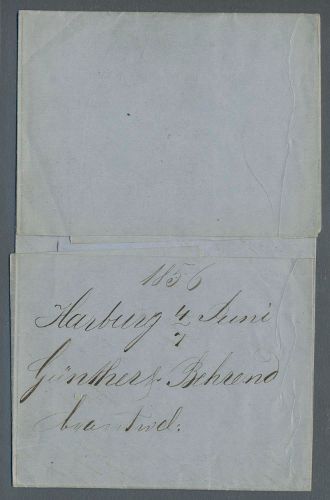 1856
Harburg 4/7 Juni
Günther & Behrend
beantwd: